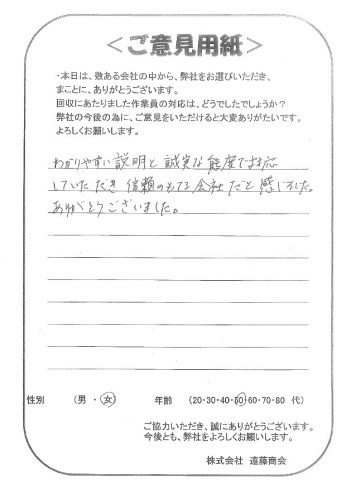 ＜ご意見用紙＞
・本日は、数ある会社の中から、弊社をお選びいただき、
まことに、ありがとうございます。
回収にあたりました作業員の対応は、どうでしたでしょうか？
弊社の今後の為に、ご意見をいただけると大変ありがたいです。
よろしくお願いします。
わかりやすい説明と誠実な態度で対応
していただき信頼のもてる会社だと感じました。
ありがとうございました。
性別 （男・女） 年齢 （20・30・40・50・60・70・80 代）
ご協力いただき、誠にありがとうございます。
今後とも、弊社をよろしくお願いします。
株式会社 遠藤商会